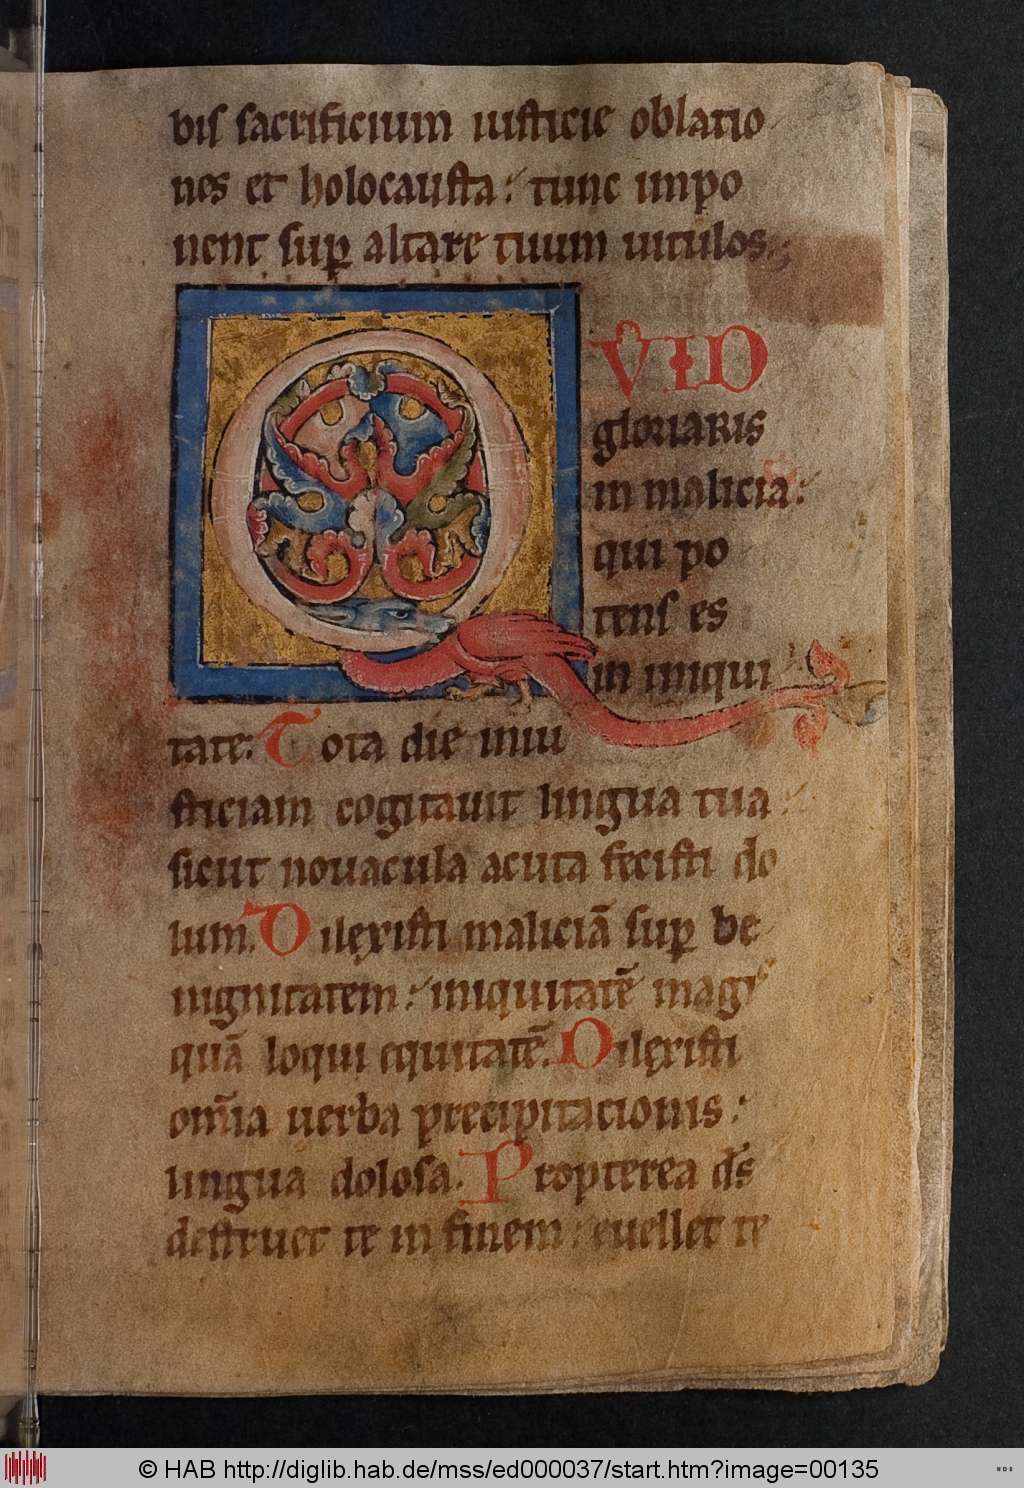 biſ ſacrificium iuſticie oblatio
nes et holocauſta: tunc impo
nent ſuꝑ altare tuum uitulos.
QVID
gloriaris
in malicia:
qui po
tenſ es
in iniqui
tate. Tota die iniu
ſticiam cogitauit lingua tua:
ſicut nouacula acuta feciſti do
lum. Dilęxiſti maliciā ſuꝑ be
nignitatem: iniquitatē magiſ
quā loqui equitatē. Dilęxiſti
om̄ia uerba precipitacionis:
lingua dolosa. Propterea d̄s
deſtruet te in finem: euellet te
© HAB http://diglib.hab.de/mss/ed000037/start.htm?image=00135